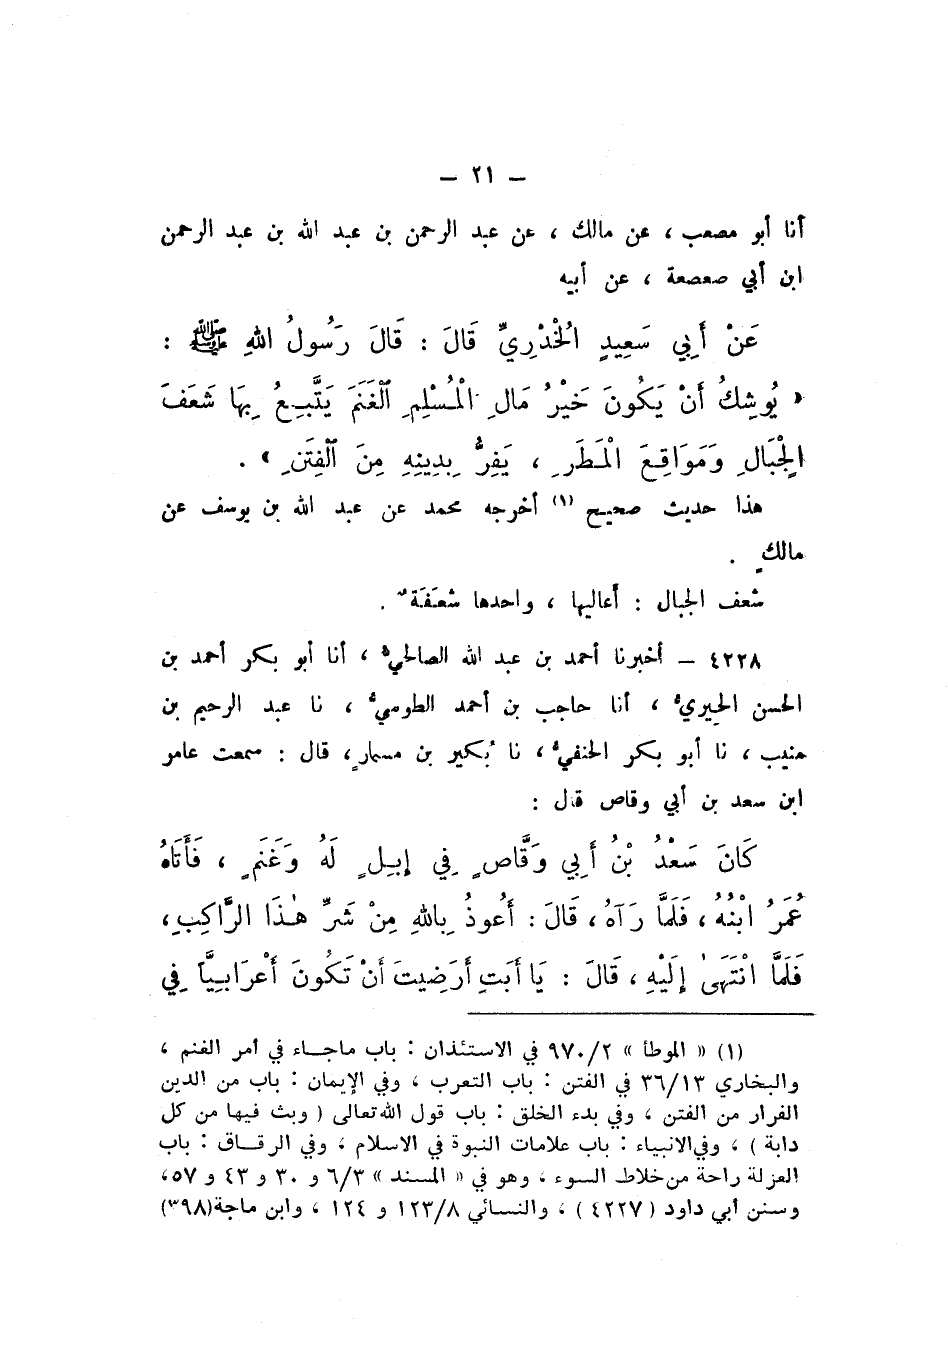 – ٢١ –
أنا أبو مصعب ، عن مالك ، عن عبد الرحمن بن عبد الله بن عبد الرحمن
ابن أبي صعصعة ، عن أبيه
عَنْ أَبِي سَعِيدٍ الْخُدْرِيِّ قَالَ : قَالَ رَسُولُ اللهِ ﷺ :
« يُوشِكُ أَنْ يَكُونَ خَيْرُ مَالِ الْمُسْلِمِ الْغَنَمَ يَتَّبِعُ بِهَا شَعَفَ
الْجِبَالِ وَمَوَاقِعَ الْمَطَرِ ، يَفِرُّ بِدِينِهِ مِنَ الْفِتَنِ » .
هذا حديث صحيح (١) أخرجه محمد عن عبد الله بن يوسف عن
مالكٍ .
شعف الجبال : أعاليها ، واحدها شعَفَة ٌ .
٤٢٢٨ – أخبرنا أحمد بن عبد الله الصالحيُّ ، أنا أبو بكر أحمد بن
الحسن الحِيريُّ ، أنا حاجب بن أحمد الطوسيُّ ، نا عبد الرحيم بن
منيب ، نا أبو بكر الحنفيُّ ، نا بُكير بن مسمارٍ ، قال : سمعت عامر
ابن سعد بن أبي وقاص قال :
كَانَ سَعْدُ بْنُ أَبِي وَقَّاصٍ فِي إِبِلٍ لَهُ وَغَنَمٍ ، فَأَتَاهُ
عُمَرُ ابْنُهُ ، فَلَمَّا رَآهُ ، قَالَ : أَعُوذُ بِاللهِ مِنْ شَرِّ هٰذَا الرَّاكِبِ ،
فَلَمَّا انْتَهَىٰ إِلَيْهِ ، قَالَ : يَا أَبَتِ أَرَضِيتَ أَنْ تَكُونَ أَعْرَابِيًّا فِي
(١) « الموطأ » ٩٧٠/٢ في الاستئذان : باب ماجاء في أمر الغنم ،
والبخاري ٣٦/١٣ في الفتن : باب التعرب ، وفي الإيمان : باب من الدين
الفرار من الفتن ، وفي بدء الخلق : باب قول الله تعالى ( وبث فيها من كل
دابة ) ، وفي الانبياء : باب علامات النبوة في الاسلام ، وفي الرقاق : باب
العزلة راحة من خلاط السوء ، وهو في « المسند » ٦/٣ و ٣٠ و ٤٣ و ٥٧ ،
وسنن أبي داود ( ٤٢٢٧ ) ، والنسائي ١٢٣/٨ و ١٢٤ ، وابن ماجة (٣٩٨)